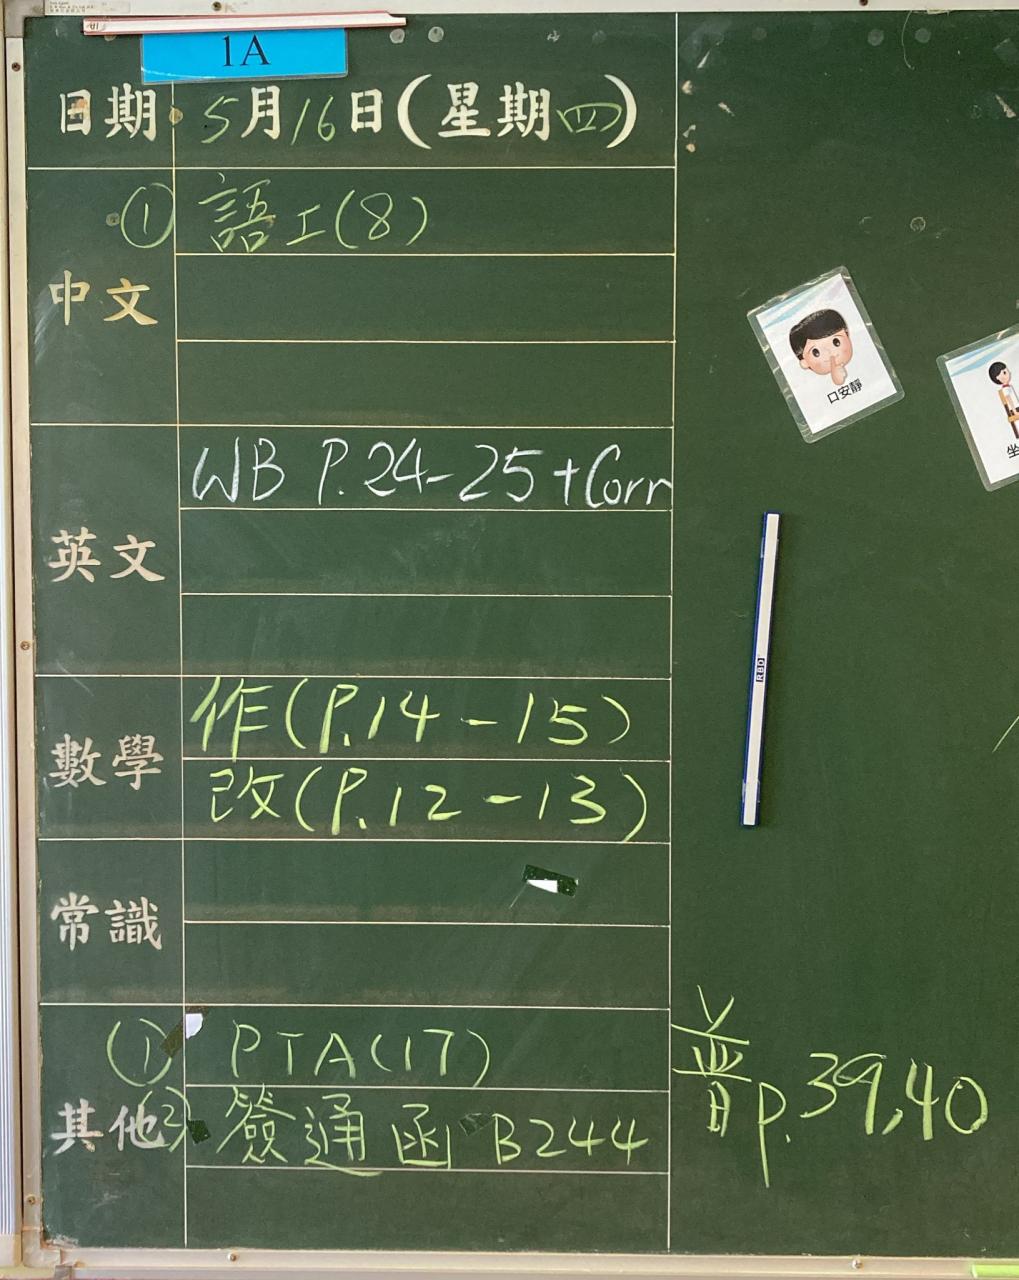 1A
日期 5月16日(星期四)
中文
① 語工(8)
英文
WB P.24-25+Corr
數學
作(P.14-15)
改(P.12-13)
常識
其他
① PTA(17)
② 簽通函 B244
普 P.39,40
口安靜
坐
RBD